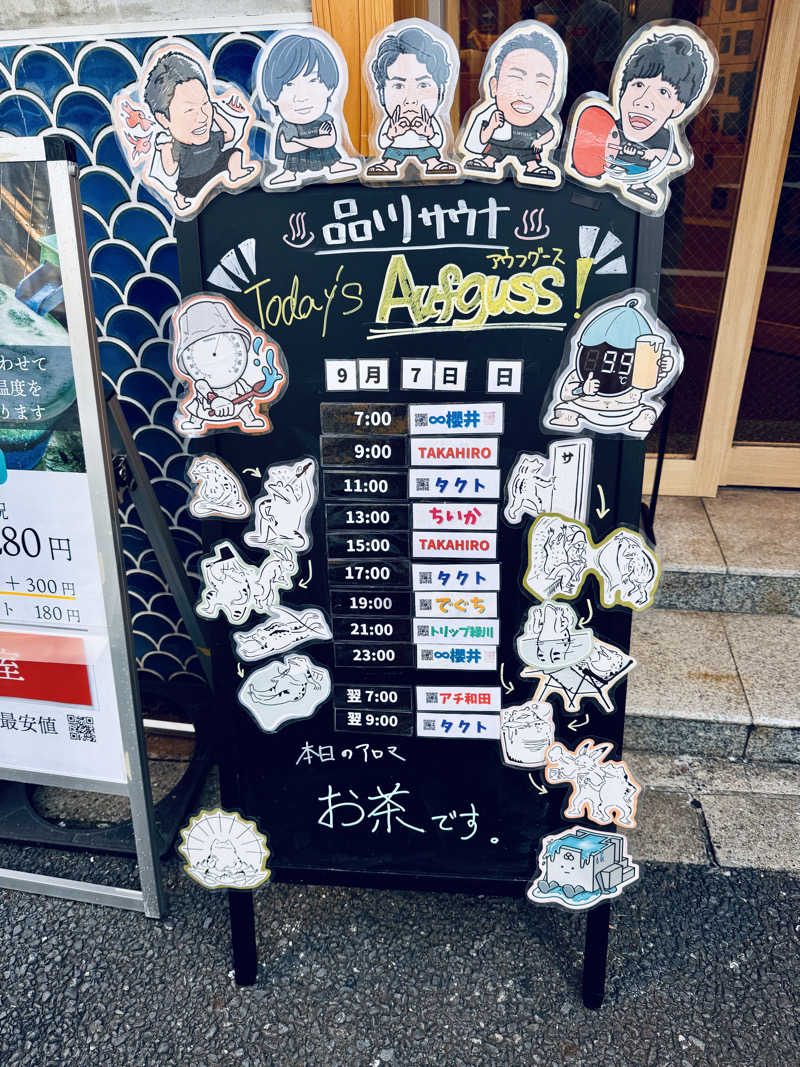 品川サウナ
アウフグース
Today's Aufguss!
9月 7日 日
7:00 ∞櫻井
9:00 TAKAHIRO
11:00 タクト
13:00 ちいか
15:00 TAKAHIRO
17:00 タクト
19:00 でぐち
21:00 トリップ緑川
23:00 ∞櫻井
翌 7:00 アチ和田
翌 9:00 タクト
本日のアロマ
お茶です。
サ
9.9℃
わせて
温度を
ります
況
80円
+ 300円
ト 180円
室
最安値